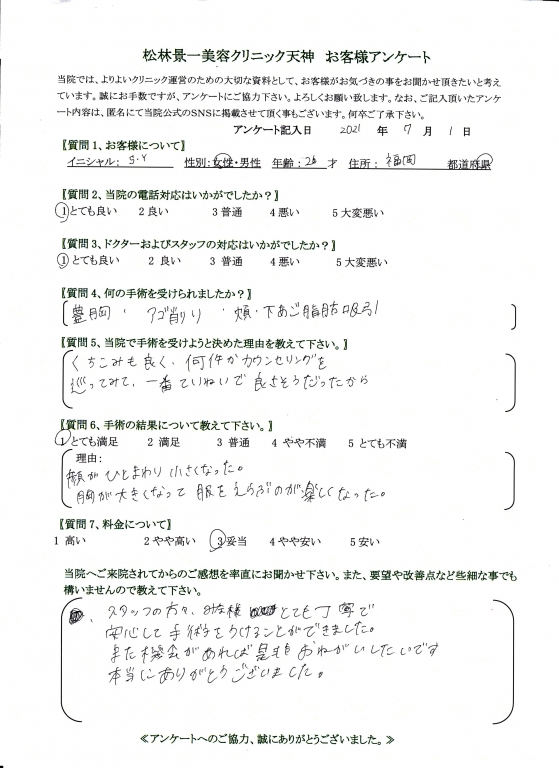 松林景一美容クリニック天神　お客様アンケート
当院では、よりよいクリニック運営のための大切な資料として、お客様がお気づきの事をお聞かせ頂きたいと考え
ています。誠にお手数ですが、アンケートにご協力下さい。よろしくお願い致します。なお、ご記入頂いたアンケ
ート内容は、匿名にて当院公式のSNSに掲載させて頂く事もございます。何卒ご了承下さい。
アンケート記入日　2021　年　7　月　1　日
【質問1、お客様について】
イニシャル：S.Y　性別：女性・男性　年齢：26　才　住所：福岡　都道府県
【質問2、当院の電話対応はいかがでしたか？】
1とても良い　2 良い　3 普通　4 悪い　5 大変悪い
【質問3、ドクターおよびスタッフの対応はいかがでしたか？】
1とても良い　2 良い　3 普通　4 悪い　5 大変悪い
【質問4、何の手術を受けられましたか？】
豊胸・アゴ削り・頬・下あご脂肪吸引
【質問5、当院で手術を受けようと決めた理由を教えて下さい。】
くちこみも良く、何件かカウンセリングを
巡ってみて、一番ていねいで良さそうだったから
【質問6、手術の結果について教えて下さい。】
1 とても満足　2 満足　3 普通　4 やや不満　5 とても不満
理由：
顔がひとまわり小さくなった。
胸が大きくなって服をえらぶのが楽しくなった。
【質問7、料金について】
1 高い　2 やや高い　3 妥当　4 やや安い　5 安い
当院へご来院されてからのご感想を率直にお聞かせ下さい。また、要望や改善点など些細な事でも
構いませんので教えて下さい。
スタッフの方々、みな様とても丁寧で
安心して手術をうけることができました。
また機会があれば是非おねがいしたいです
本当にありがとうございました。
≪アンケートへのご協力、誠にありがとうございました。≫